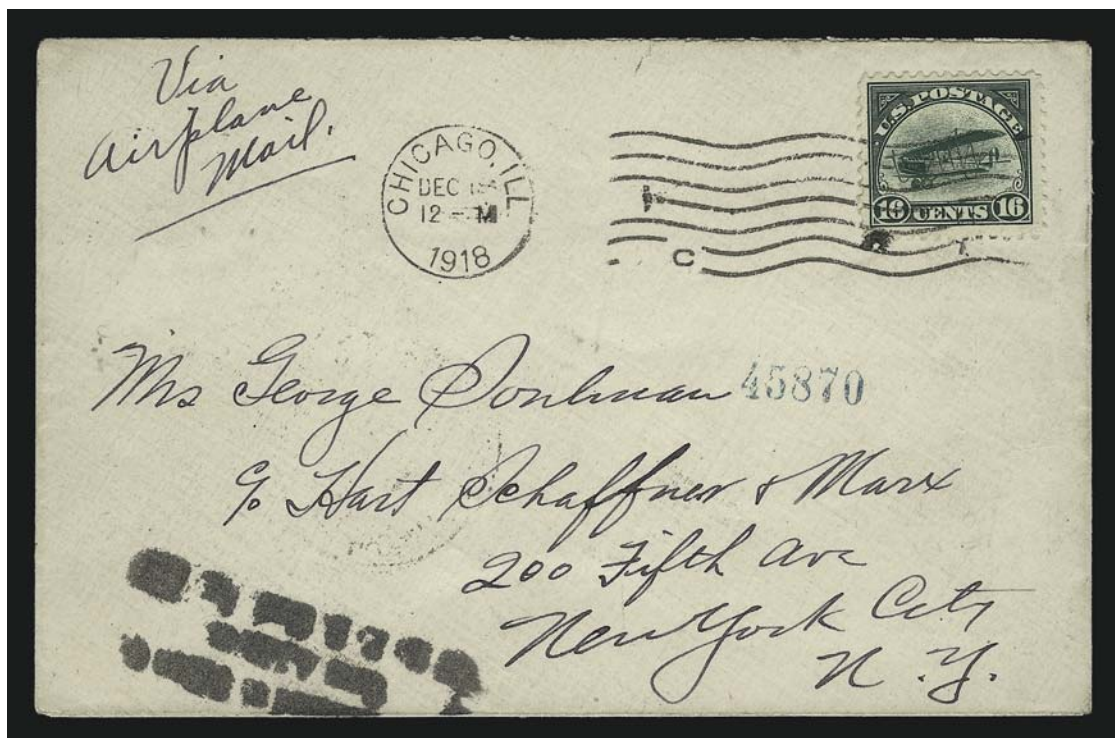 Via
Airplane
Mail.
CHICAGO, ILL
DEC
12 - M
1918
U.S. POSTAGE
16 CENTS 16
C
Mrs George 45870
c/o Hart Schaffner & Marx
200 Fifth Ave
New York City
N.Y.